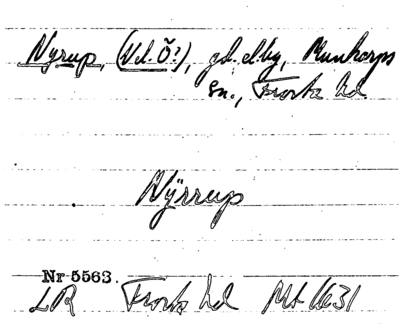 Nyrup, (Vd. Ö?), gd. el. by, Munkarps
sn., Frosta hd.
Nÿrrup
Nr 5563.
LR Frosta hd Mt 1631